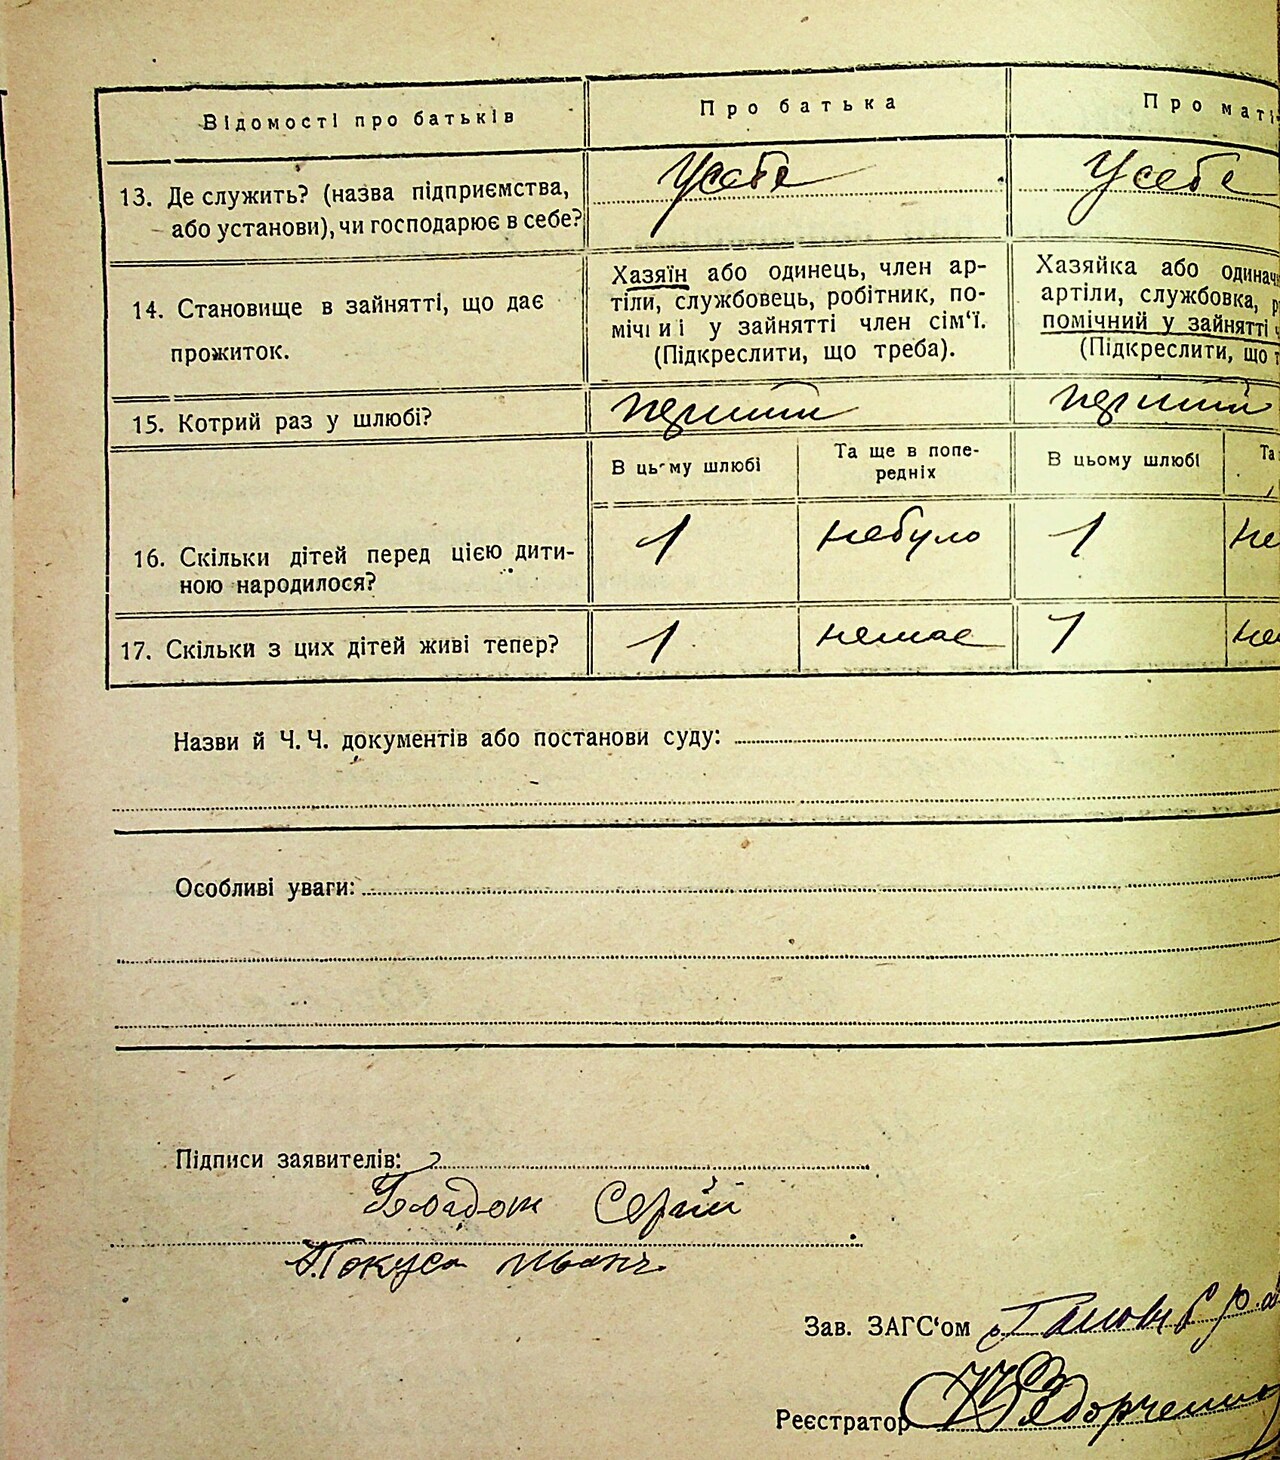 Відомості про батьків
Про батька
Про маті
13. Де служить? (назва підприємства,
або установи), чи господарює в себе?
Усебе
Усебе
14. Становище в зайнятті, що дає
прожиток.
Хазяїн або одинець, член ар-
тіли, службовець, робітник, по-
мічниі у зайнятті член сім‘ї.
(Підкреслити, що треба).
Хазяйка або одинач
артіли, службовка, р
помічний у зайнятті ч
(Підкреслити, що т
15. Котрий раз у шлюбі?
перший
перший
В цьому шлюбі
Та ще в попе-
редніх
В цьому шлюбі
Та
16. Скільки дітей перед цією дити-
ною народилося?
1
небуло
1
не
17. Скільки з цих дітей живі тепер?
1
немає
1
не
Назви й Ч. Ч. документів або постанови суду:
Особливі уваги:
Підписи заявителів:
Сергій
Покуса Иван
Зав. ЗАГС‘ом
Реєстратор